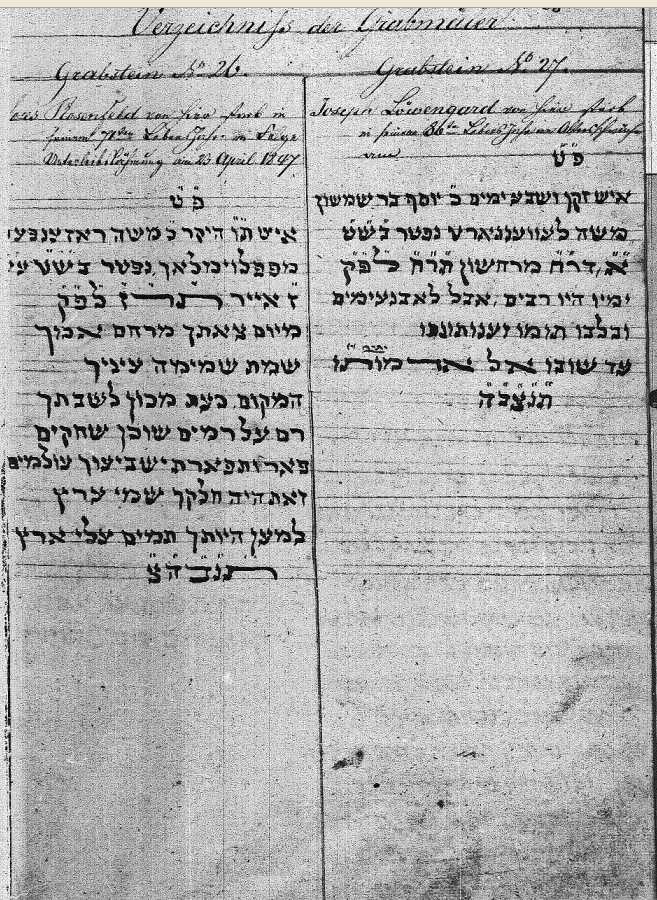 Verzeichniss der Grabmäler
Grabstein No 26.
Rosenfeld von hier starb in
seinem Lebens Jahre in Folge
am 23 April 1847
פ ט
איש תו היקר כ משה ראזענפע
נפטר בשש
ז אייר לפק
מיום צאתך מרחם אמיך
שמת שמימה עיניך
המקום כעת מכון לשבתך
רם על רמים שוכן שחקים
פאר ותפארת ישביעוך עולמים
זאת היה חלקך שמי ערץ
למען היותך תמים עלי ארץ
תנצבה
Grabstein No 27.
Joseph Löwengard von hier starb
in seinem 86ten Lebens Jahre an Altersschwäche
פ ט
איש זקן ושבע ימים כ יוסף בר שמשון
משה לעווענגארט נפטר בשש
דרח מרחשון תרח לפק
ימיו היו רבים, אבל לא בנעימים
ובלבו תומו וענותנותו
עד שובו אל מותו
תנצבה